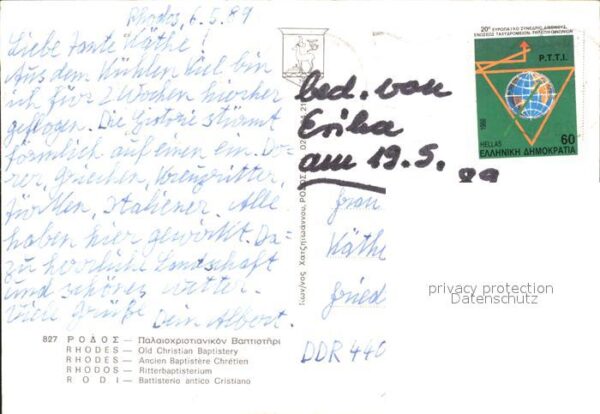 Rhodos, 6.5.89
Liebe Tante Käthe!
Aus dem Kühlen Kiel bin
ich für 2 Wochen hierher
geflogen. Die Historie stürmt
förmlich auf einen ein. Do=
rer, Griechen, Kreuzritter,
Türken, Italiener. Alle
haben hier gewirkt. Da=
zu herrliche Landschaft
und schönes Wetter.
Viele Grüße
Dein Albert.
827 ΡΟΔΟΣ — Παλαιοχριστιανικόν Βαπτιστήρι
RHODES — Old Christian Baptistery
RHODES — Ancien Baptistère Chrétien
RHODOS — Ritterbaptisterium
RODI — Battisterio antico Cristiano
Χατζηϊωάννου, ΡΟΔΟΣ
20° ΕΥΡΩΠΑΪΚΟ ΣΥΝΕΔΡΙΟ ΔΙΕΘΝΟΥΣ
ΕΝΩΣΕΩΣ ΤΑΧΥΔΡΟΜΙΚΩΝ, ΤΗΛΕΠΙΚΟΙΝΩΝΙΩΝ
P.T.T.I.
1988
HELLAS
60
ΕΛΛΗΝΙΚΗ ΔΗΜΟΚΡΑΤΙΑ
bed. von
Erika
am 19.5.89
Frau
Käthe
Fried
privacy protection
Datenschutz
DDR 440